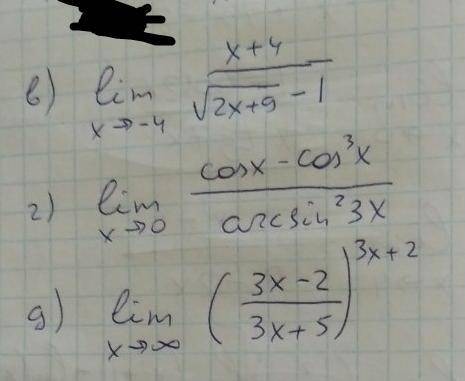 в) lim x→-4 (x+4)/(√(2x+9) - 1)
г) lim x→0 (cosx - cos³x)/(arcsin²3x)
д) lim x→∞ ((3x-2)/(3x+5))^(3x+2)